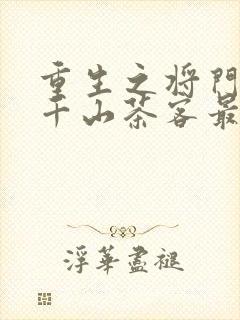 重生之将门
千山茶客最
浮華盡褪